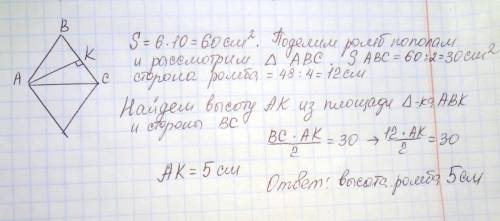 B
K
A
C
S = 6·10 = 60 см². Поделим ромб пополам
и рассмотрим △ ABC. S ABC = 60:2 = 30 см²
сторона ромба = 48:4 = 12 см
Найдем высоту AK из площади △-ка ABK
и стороны BC
BC·AK/2 = 30 → 12·AK/2 = 30
AK = 5 см
Ответ: высота ромба 5 см